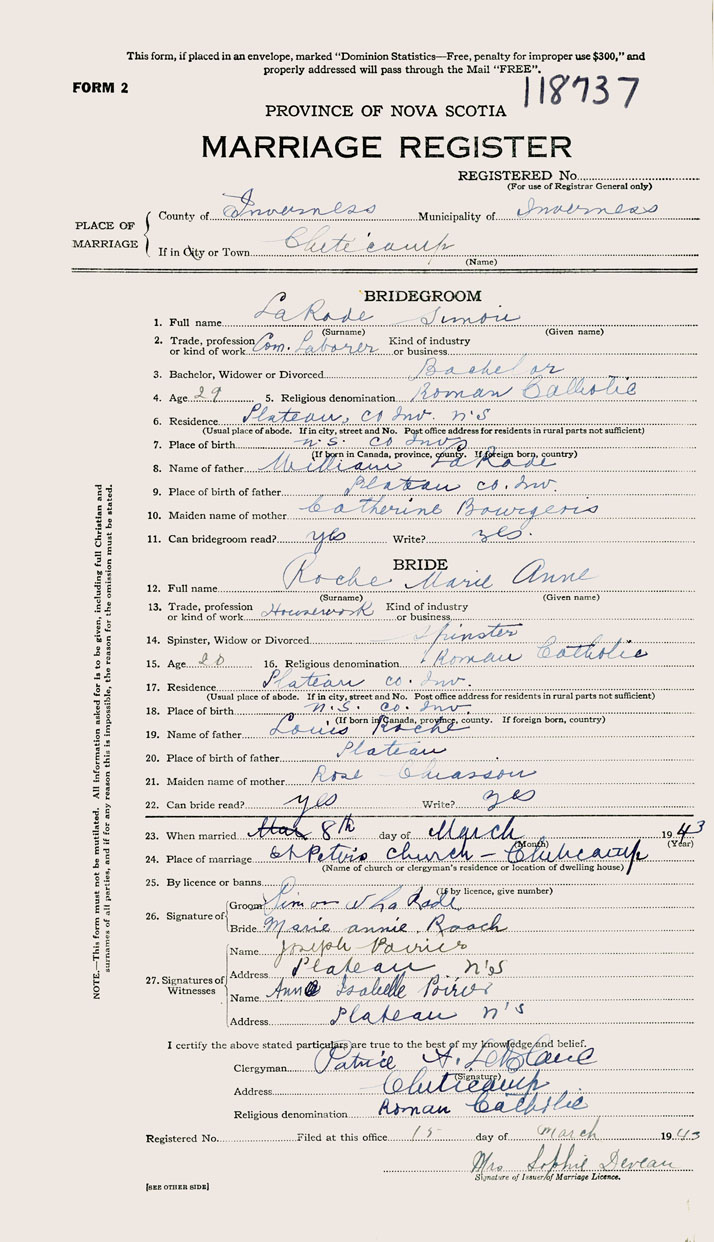 This form, if placed in an envelope, marked "Dominion Statistics—Free, penalty for improper use $300," and
properly addressed will pass through the Mail "FREE".
FORM 2
118737
PROVINCE OF NOVA SCOTIA
MARRIAGE REGISTER
REGISTERED No.
(For use of Registrar General only)
PLACE OF MARRIAGE
County of Inverness Municipality of Inverness
If in City or Town Cheticamp
(Name)
BRIDEGROOM
1. Full name LaRade Simon
(Surname) (Given name)
2. Trade, profession or kind of work Com. Laborer Kind of industry or business
3. Bachelor, Widower or Divorced Bachelor
4. Age 29 5. Religious denomination Roman Catholic
6. Residence Plateau, co Inv. N'S
(Usual place of abode. If in city, street and No. Post office address for residents in rural parts not sufficient)
7. Place of birth N.S. co Inv.
(If born in Canada, province, county. If foreign born, country)
8. Name of father William LaRade
9. Place of birth of father Plateau co. Inv.
10. Maiden name of mother Catherine Bourgeois
11. Can bridegroom read? yes Write? yes.
BRIDE
12. Full name Roche Marie Anne
(Surname) (Given name)
13. Trade, profession or kind of work Housework Kind of industry or business
14. Spinster, Widow or Divorced Spinster
15. Age 20 16. Religious denomination Roman Catholic
17. Residence Plateau co. Inv.
(Usual place of abode. If in city, street and No. Post office address for residents in rural parts not sufficient)
18. Place of birth N.S. co. Inv.
(If born in Canada, province, county. If foreign born, country)
19. Name of father Louis Roche
20. Place of birth of father Plateau
21. Maiden name of mother Rose Chiasson
22. Can bride read? yes Write? yes
23. When married Mar 8th day of March 1943
(Month) (Year)
24. Place of marriage St Peter's Church – Cheticamp
(Name of church or clergyman's residence or location of dwelling house)
25. By licence or banns
(If by licence, give number)
26. Signature of
Groom Simon W LaRade
Bride Marie annie Roach
27. Signatures of Witnesses
Name Joseph Poirier
Address Plateau N'S
Name Anne Isabelle Poirier
Address Plateau N'S
I certify the above stated particulars are true to the best of my knowledge and belief.
Clergyman Patrice A. LeBlanc
(Signature)
Address Cheticamp
Religious denomination Roman Catholic
Registered No. Filed at this office 15 day of March 1943
Mrs Sophie Deveau
Signature of Issuer of Marriage Licence.
[SEE OTHER SIDE]
NOTE.—This form must not be mutilated. All information asked for is to be given, including full Christian and
surnames of all parties, and if for any reason this is impossible, the reason for the omission must be stated.